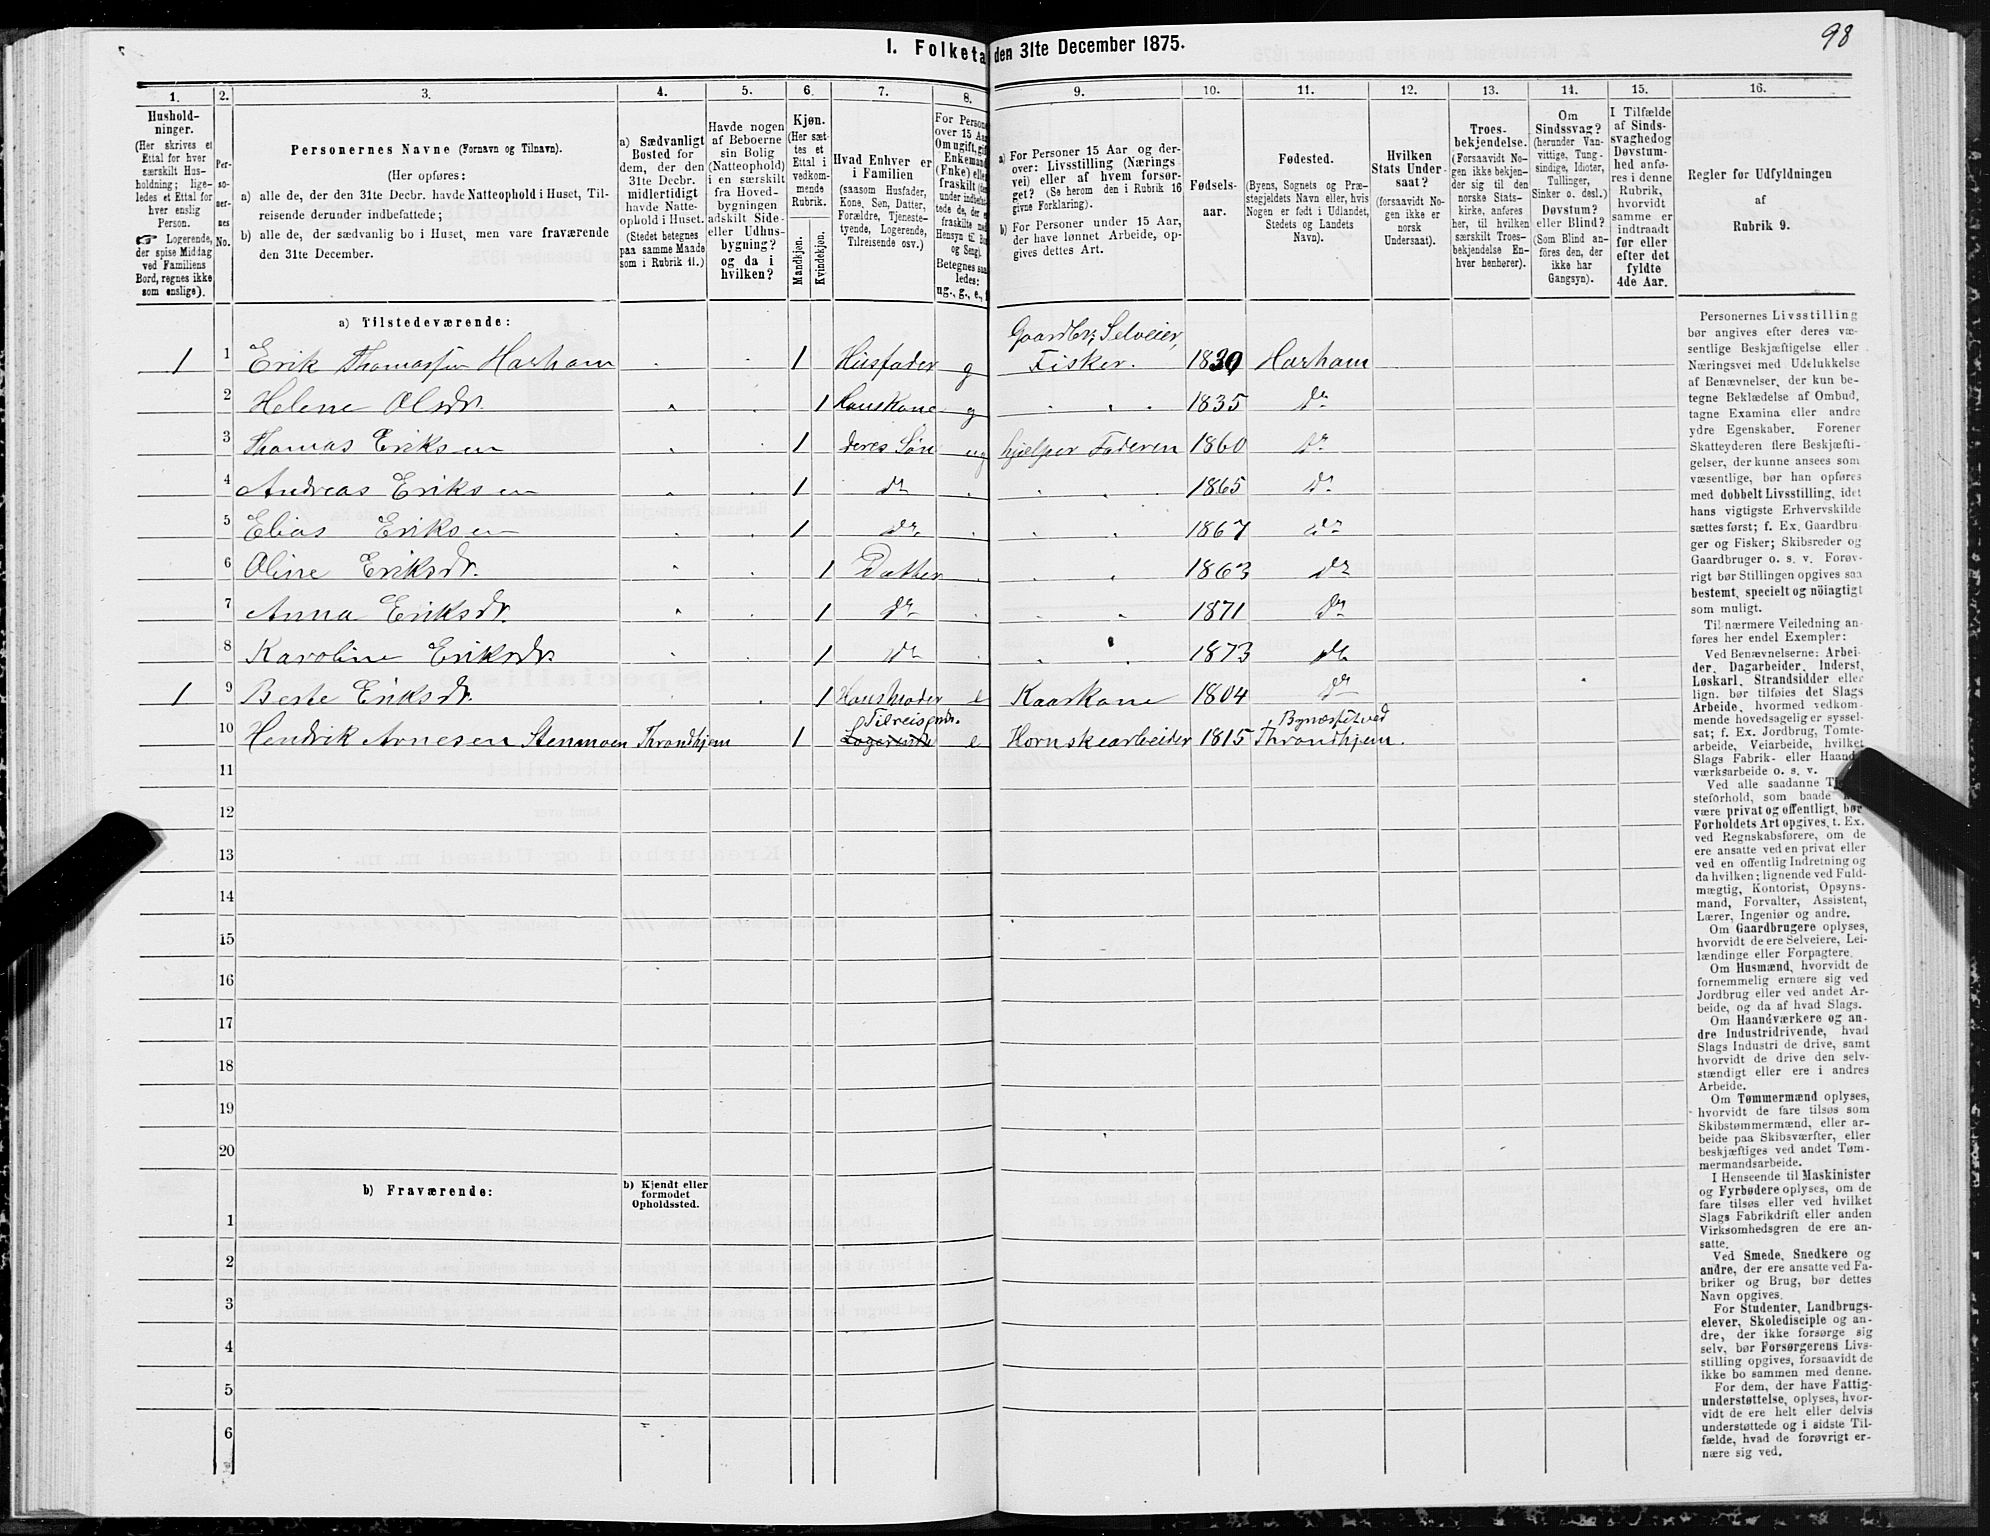 98
I. Folketa den 31te December 1875.
1. 2. 3. 4. 5. 6. 7. 8. 9. 10. 11. 12. 13. 14. 15. 16.
Hushold-
ninger.
(Her skrives et
Ettal for hver
særskilt Hus-
holdning; lige-
ledes et Ettal for
hver enslig
Person.
☞ Logerende,
der spise Middag
ved Familiens
Bord, regnes ikke
som enslige).
Per-
so-
ner-
nes
No.
Personernes Navne (Fornavn og Tilnavn).
(Her opføres:
a) alle de, der den 31te Decbr. havde Natteophold i Huset, Til-
reisende derunder indbefattede;
b) alle de, der sædvanlig bo i Huset, men vare fraværende
den 31te December.
a) Sædvanligt
Bosted for
dem, der den
31te Decbr.
midlertidigt
havde Natte-
ophold i Huset.
(Stedet betegnes
paa samme Maade
som i Rubrik 11.)
Havde nogen
af Beboerne
sin Bolig
(Natteophold)
i en særskilt
fra Hoved-
bygningen
adskilt Side-
eller Udhus-
bygning?
og da i
hvilken?
Kjøn.
(Her sæt-
tes et
Ettal i
vedkom-
mende
Rubrik.
Mandkjøn.
Kvindekjøn.
Hvad Enhver er
i Familien
(saasom Husfader,
Kone, Søn, Datter,
Forældre, Tjeneste-
tyende, Logerende,
Tilreisende osv.)
For Persone
over 15 Aa
Om ugift, gif
Enkemand
(Enke) elle
fraskilt
Betegnes saa
ledes:
ug., g., e., f
a) For Personer 15 Aar og der-
over: Livsstilling (Nærings
vei) eller af hvem forsør-
get? (Se herom den i Rubrik 16
givne Forklaring).
b) For Personer under 15 Aar,
der have lønnet Arbeide, op-
gives dettes Art.
Fødsels-
aar.
Fødested.
(Byens, Sognets og Præ-
stegjeldets Navn eller, hvis
Nogen er født i Udlandet,
Stedets og Landets
Navn).
Hvilken
Stats Under-
saat?
(forsaavidt No-
gen ikke er
norsk
Undersaat).
Troes-
bekjendelse.
(Forsaavidt No-
gen ikke bekjen-
der sig til den
norske Stats-
kirke, anføres
her, til hvilken
særskilt Troes-
bekjendelse En-
hver henhører).
Om
Sindssvag?
(herunder Van-
vittige, Tung-
sindige, Idioter,
Tullinger,
Sinker o. desl.)
Døvstum?
eller Blind?
(Som Blind an-
føres den, der
ikke har
Gangsyn).
I Tilfælde
af Sinds-
svaghed og
Døvstum-
hed anfø-
res i denne
Rubrik,
hvorvidt
samme er
indtraadt
før eller
efter det
fyldte
4de Aar.
Regler for Udfyldningen
af
Rubrik 9.
a) Tilstedeværende:
1 1 Erik Thomassen Harham 1 Husfader g Gaardbr, Selveier, Fisker. 1830 Harham
2 Helene Olsdr. 1 Huuskone g 1835 do
3 Thomas Eriksen 1 deres Søn ug hjælper Faderen 1860 do
4 Andreas Eriksen 1 do 1865 do
5 Elias Eriksen 1 do 1867 do
6 Oline Eriksdr. 1 Datter 1863 do
7 Anna Eriksdr. 1 do 1871 do
8 Karoline Eriksdr. 1 do 1873 do
1 9 Berte Eriksdr. 1 e Kaarkone 1804 do
10 Hendrik Arnesen Stenmoen Throndhjem 1 Tilreisende. Logerende e 1815 Throndhjem.
11
12
13
14
15
16
17
18
19
20
b) Fraværende:
b) Kjendt eller
formodet
Opholdssted.
1
2
3
4
5
6
Personernes Livsstilling
bør angives efter deres væ-
sentlige Beskjæftigelse eller
Næringsvei med Udelukkelse
af Benævnelser, der kun be-
tegne Beklædelse af Ombud,
tagne Examina eller andre
ydre Egenskaber. Forener
Skatteyderen flere Beskjæfti-
gelser, der kunne ansees som
væsentlige, bør han opføres
med dobbelt Livsstilling, idet
hans vigtigste Erhvervskilde
sættes først; f. Ex. Gaardbru-
ger og Fisker; Skibsreder og
Gaardbruger o. s. v. Forøv-
rigt bør Stillingen opgives saa
bestemt, specielt og nöiagtigt
som muligt.
Til nærmere Veiledning an-
føres her endel Exempler:
Ved Benævnelserne: Arbei-
der, Dagarbeider, Inderst,
Løskarl, Strandsidder eller
lign. bør tilføies det Slags
Arbeide, hvormed vedkom-
mende hovedsagelig er syssel-
sat; f. Ex. Jordbrug, Tomte-
arbeide, Veiarbeide, hvilket
Slags Fabrik- eller Haand-
værksarbeide o. s. v.
Ved alle saadanne
steforhold, som baade
være privat og offentligt, bør
Forholdets Art opgives, t. Ex.
ved Regnskabsførere, om de
ere ansatte ved en privat eller
ved en offentlig Indretning og
da hvilken; lignende ved Fuld-
mægtig, Kontorist, Opsyns-
mand, Forvalter, Assistent,
Lærer, Ingeniør og andre.
Om Gaardbrugere oplyses,
hvorvidt de ere Selveiere, Lei-
lændinge eller Forpagtere.
Om Husmænd, hvorvidt de
fornemmelig ernære sig ved
Jordbrug eller ved andet Ar-
beide, og da af hvad Slags.
Om Haandværkere og an-
dre Industridrivende, hvad
Slags Industri de drive, samt
hvorvidt de drive den selv-
stændigt eller ere i andres
Arbeide.
Om Tømmermænd oplyses,
hvorvidt de fare tilsøs som
Skibstømmermænd, eller ar-
beide paa Skibsværfter, eller
beskjæftiges ved andet Tøm-
mermandsarbeide.
I Henseende til Maskinister
og Fyrbødere oplyses, om de
fare tilsøs eller ved hvilket
Slags Fabrikdrift eller anden
Virksomhedsgren de ere an-
satte.
Ved Smede, Snedkere og
andre, der ere ansatte ved Fa-
briker og Brug, bør dettes
Navn opgives.
For Studenter, Landbrugs-
elever, Skoledisciple og an-
dre, der ikke forsørge sig
selv, bør Forsørgerens Livs-
stilling opgives, forsaavidt de
ikke bo sammen med denne.
For dem, der have Fattig-
understøttelse, oplyses, hvor-
vidt de ere helt eller delvis
understøttede og i sidste Til-
fælde, hvad de forøvrigt er-
nære sig ved.